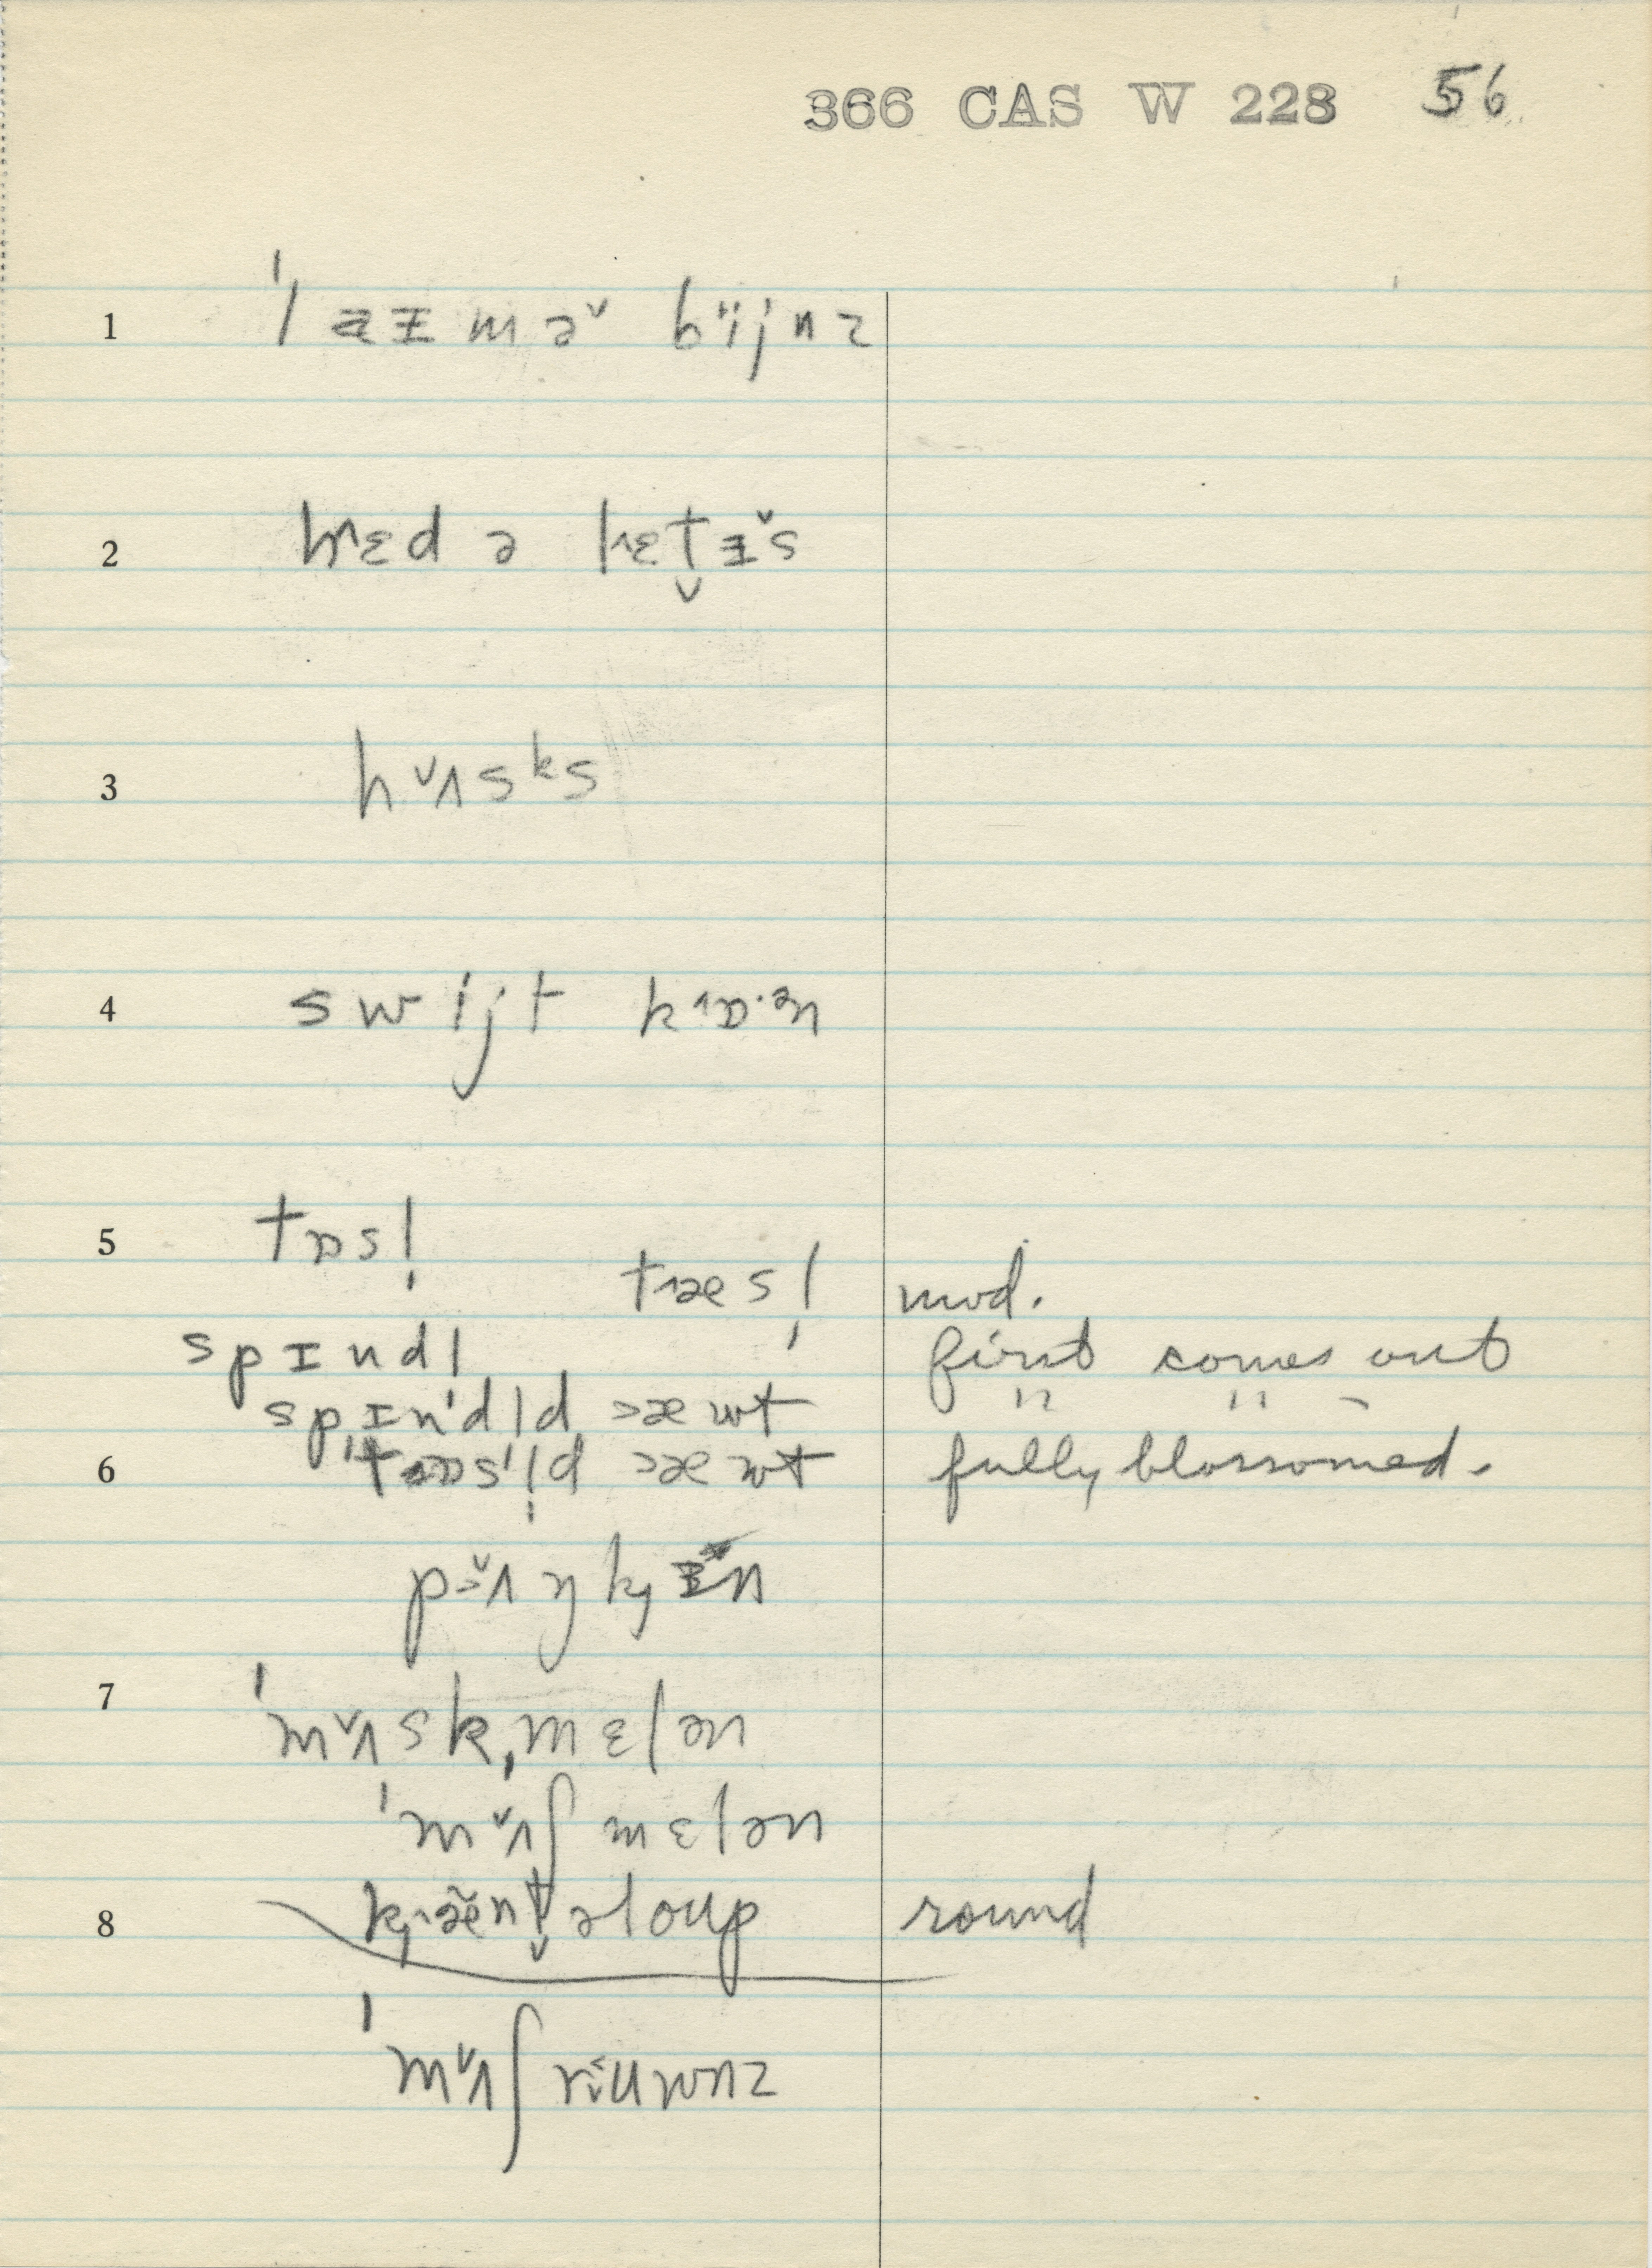 366 CAS W 228 56
1 ˈlaɪməˇ bïjnz
2 hɛd ə lɛt̬ɪˇs
3 hʌˇsᵏs
4 swijt kɒ·ᵊn
5 tɒsl̩
tæsl̩ mod.
spɪndl first comes out
spɪnˈdld æwt " " –
6 ˈtɒsl̩d æwt fully blossomed.
pʌˇŋkɪn
7 ˈmʌˇskˌmɛlən
ˈmʌˇʃmɛlən
8 kæ̃nt̬əloup round
ˈmʌˇʃrɪuwnz